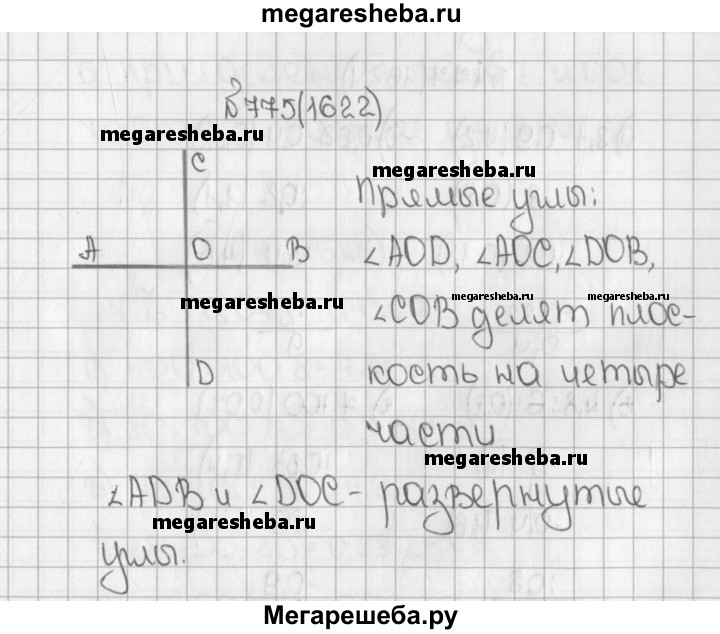 megaresheba.ru
№775(1622)
megaresheba.ru
C
megaresheba.ru
Прямые углы:
A O B
∠AOD, ∠AOC, ∠DOB,
megaresheba.ru megaresheba.ru megaresheba.ru
∠COB делят плос-
D
кость на четыре
части
megaresheba.ru
∠ADB и ∠DOC - развернутые
megaresheba.ru
углы.
Мегарешеба.ру